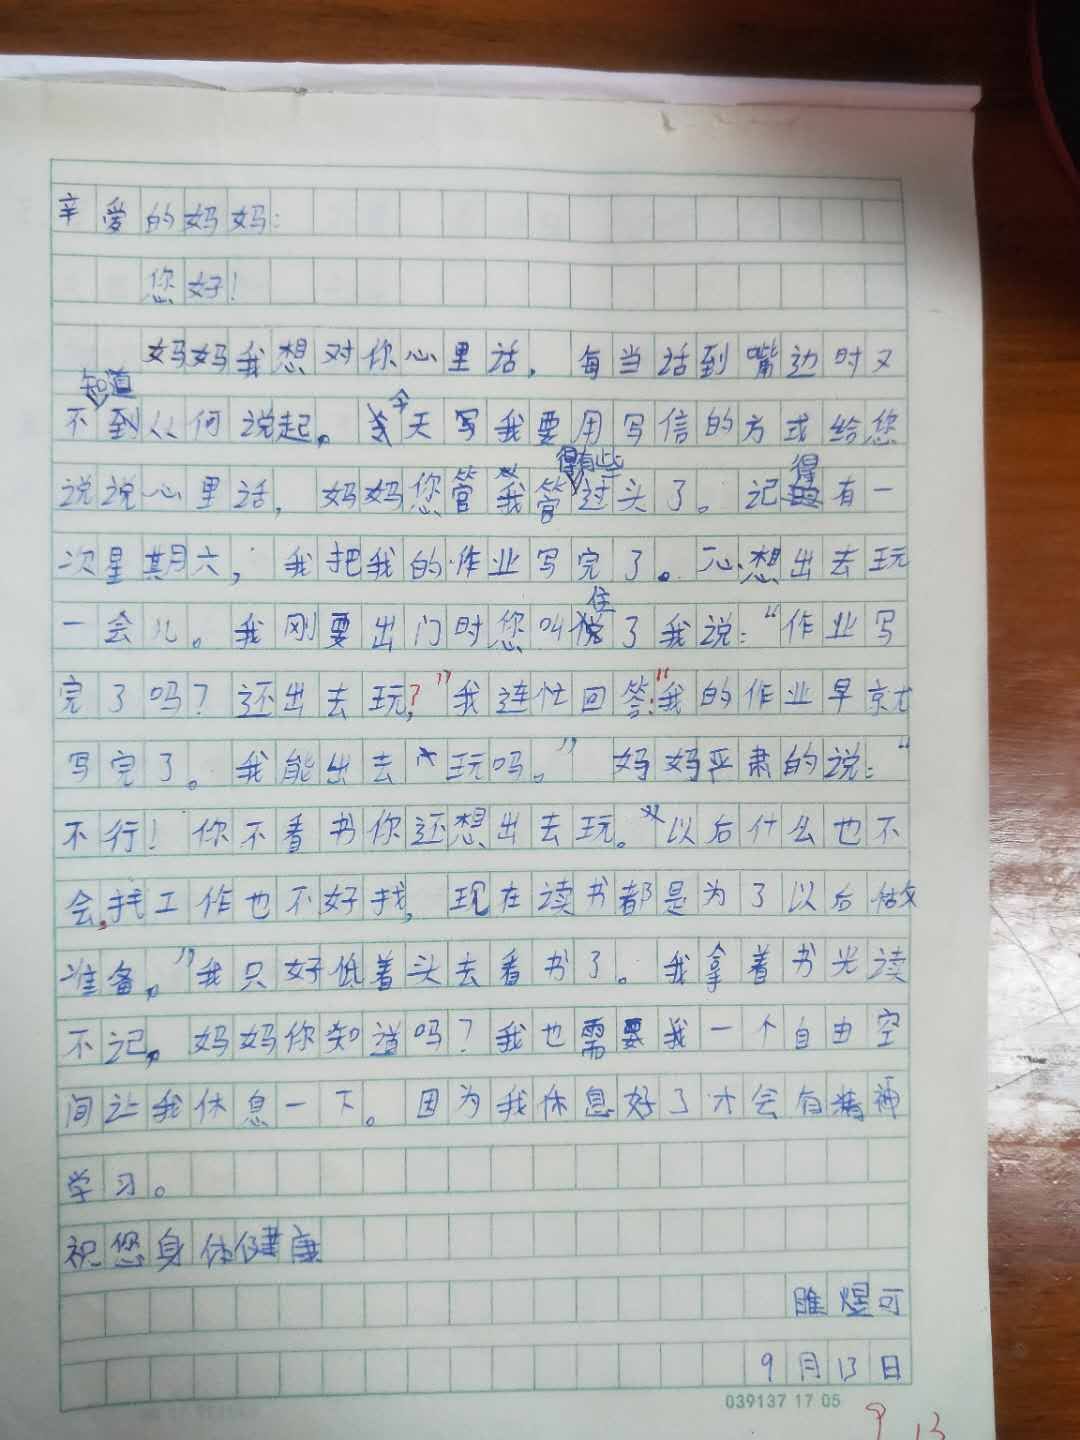 辛爱的妈妈：
您好！
妈妈我想对你心里话，每当话到嘴边时又
不知道到从何说起。今天写我要用写信的方式给您
说说心里话，妈妈您管我管得有些过头了。记得有一
次星期六，我把我的作业写完了。心想出去玩
一会儿。我刚要出门时您叫住了我说：“作业写
完了吗？还出去玩？”我连忙回答：“我的作业早就
写完了。我能出去玩吗。”妈妈严肃的说：“
不行！你不看书你还想出去玩。以后什么也不
会，找工作也不好找，现在读书都是为了以后做
准备。”我只好低着头去看书了。我拿着书光读
不记。妈妈你知道吗？我也需要我一个自由空
间让我休息一下。因为我休息好了才会有精神
学习。
祝您身体健康
煜可
9月13日
039137 17 05
9 13